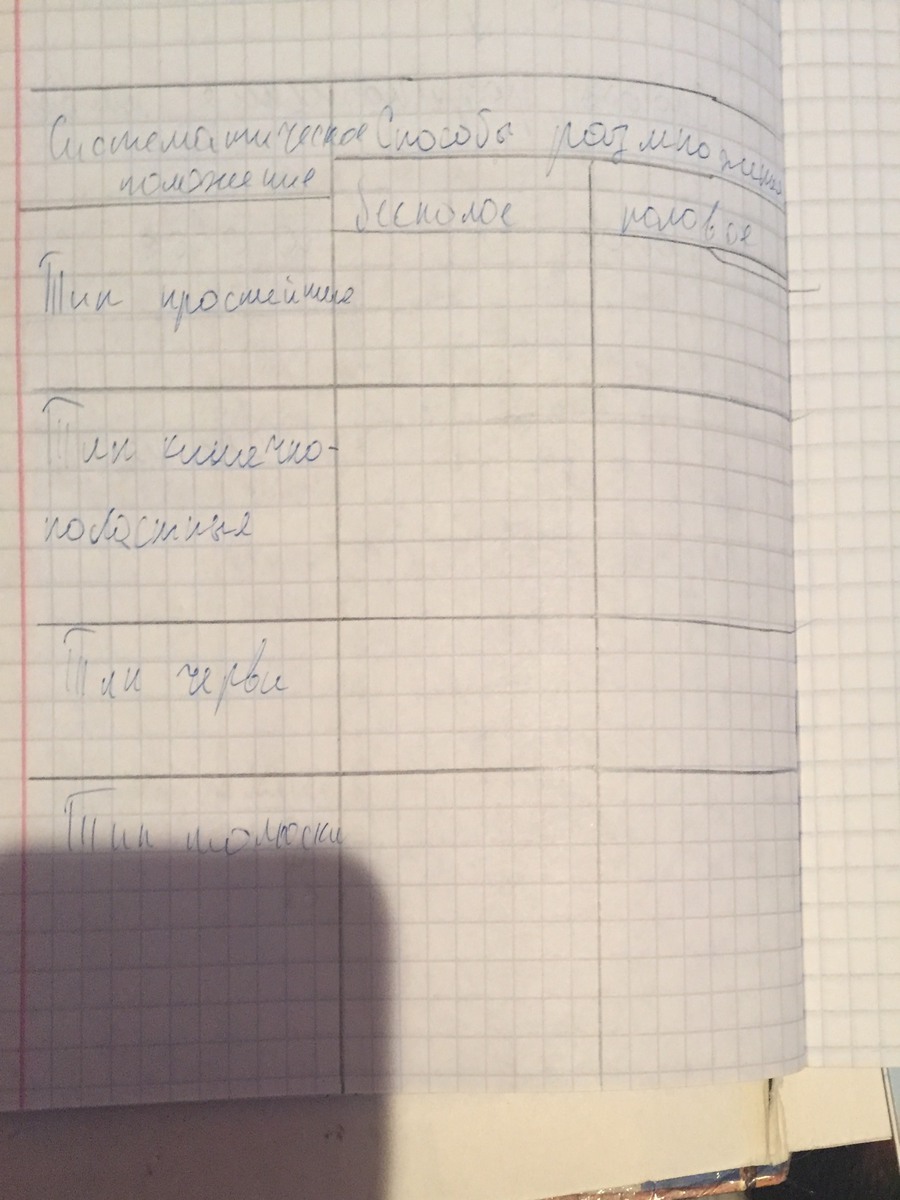 Систематическое Способы размножения
положение
бесполое половое
Тип простейшие
Тип кишечно-
полостные
Тип черви
Тип молюски